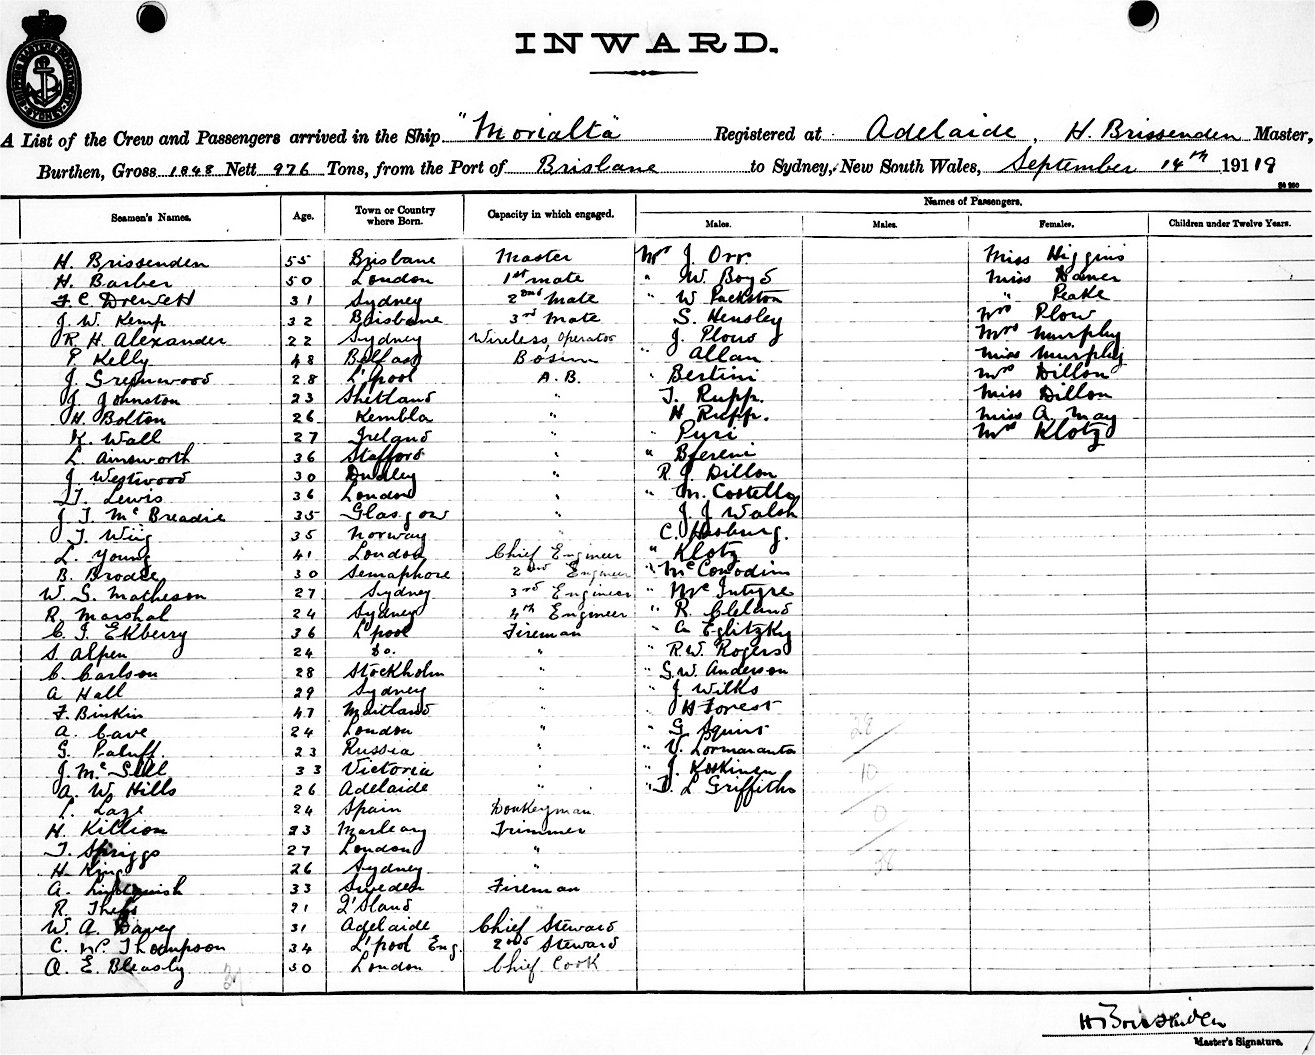 INWARD.
A List of the Crew and Passengers arrived in the Ship "Morialta" Registered at Adelaide, H. Brissenden Master,
Burthen, Gross 1848 Nett 976 Tons, from the Port of Brisbane to Sydney, New South Wales, September 14th 1919
Seamen's Names. Age. Town or Country where Born. Capacity in which engaged. Names of Passengers.
Males. Males. Females. Children under Twelve Years.
H. Brissenden 55 Brisbane Master Mr J. Orr Miss Higgins
H. Barber 50 London 1st mate " W. Boyd Miss
F C Drewett 31 Sydney 2nd Mate " W Packston " Peake
J. W. Kemp 32 Brisbane 3rd Mate S. Hensley Mrs Plow
R H. Alexander 22 Sydney Wireless Operator J. Plows Mrs Murphy
P Kelly 48 Belfast Bosun " Allan Miss Murphy
J. Greenwood 28 L'pool A.B. " Bertini Mrs Dillon
J. Johnston 23 Shetland " T. Rupp. Miss Dillon
H. Bolton 26 Kembla " H Rupp. Miss A. May
Wall 27 Ireland " " Puri Mrs Klotz
L Ainsworth 36 Stafford " "
J. Westwood 30 Dudley " R. J. Dillon
T. Lewis 36 London " " M. Costello
J. T. McBreadie 35 Glasgow " J. J Walsh
T. Wiig 35 Norway " C.
L. Young 41 London Chief Engineer " Klotz
B. Brodie 30 Semaphore 2nd Engineer "
W. G. Matheson 27 Sydney 3rd Engineer " McIntyre
R. Marshal 24 Sydney 4th Engineer " R. Cleland
C. J. Ekberry 36 L'pool Fireman " A Eglitzky
S. Alpen 24 Do. " " R.W. Rogers
C. Carlson 28 Stockholm " " G.W. Anderson
A Hall 29 Sydney " " J. Wilks
F. Binkin 47 Maitland " " H Forrest
A. Cave 24 London " " G. Squirs
G. Paluff. 23 Russia " " V. Lormaranta
J. Mc 33 Victoria " " J. Koskinen
A. W Hills 26 Adelaide " " D. L Griffiths
L. Laze 24 Spain Donkeyman
H. Killion 23 Trimmer
T. Spriggs 27 London "
H. King 26 Sydney "
A. 33 Sweden Fireman
R. 21 Q'sland "
W. A. Davey 31 Adelaide Chief Steward
C. W. Thompson 34 L'pool Eng. 2nd Steward
A. E. Bleasly 50 London Chief Cook
28
10
0
38
H Brissenden
Master's Signature.